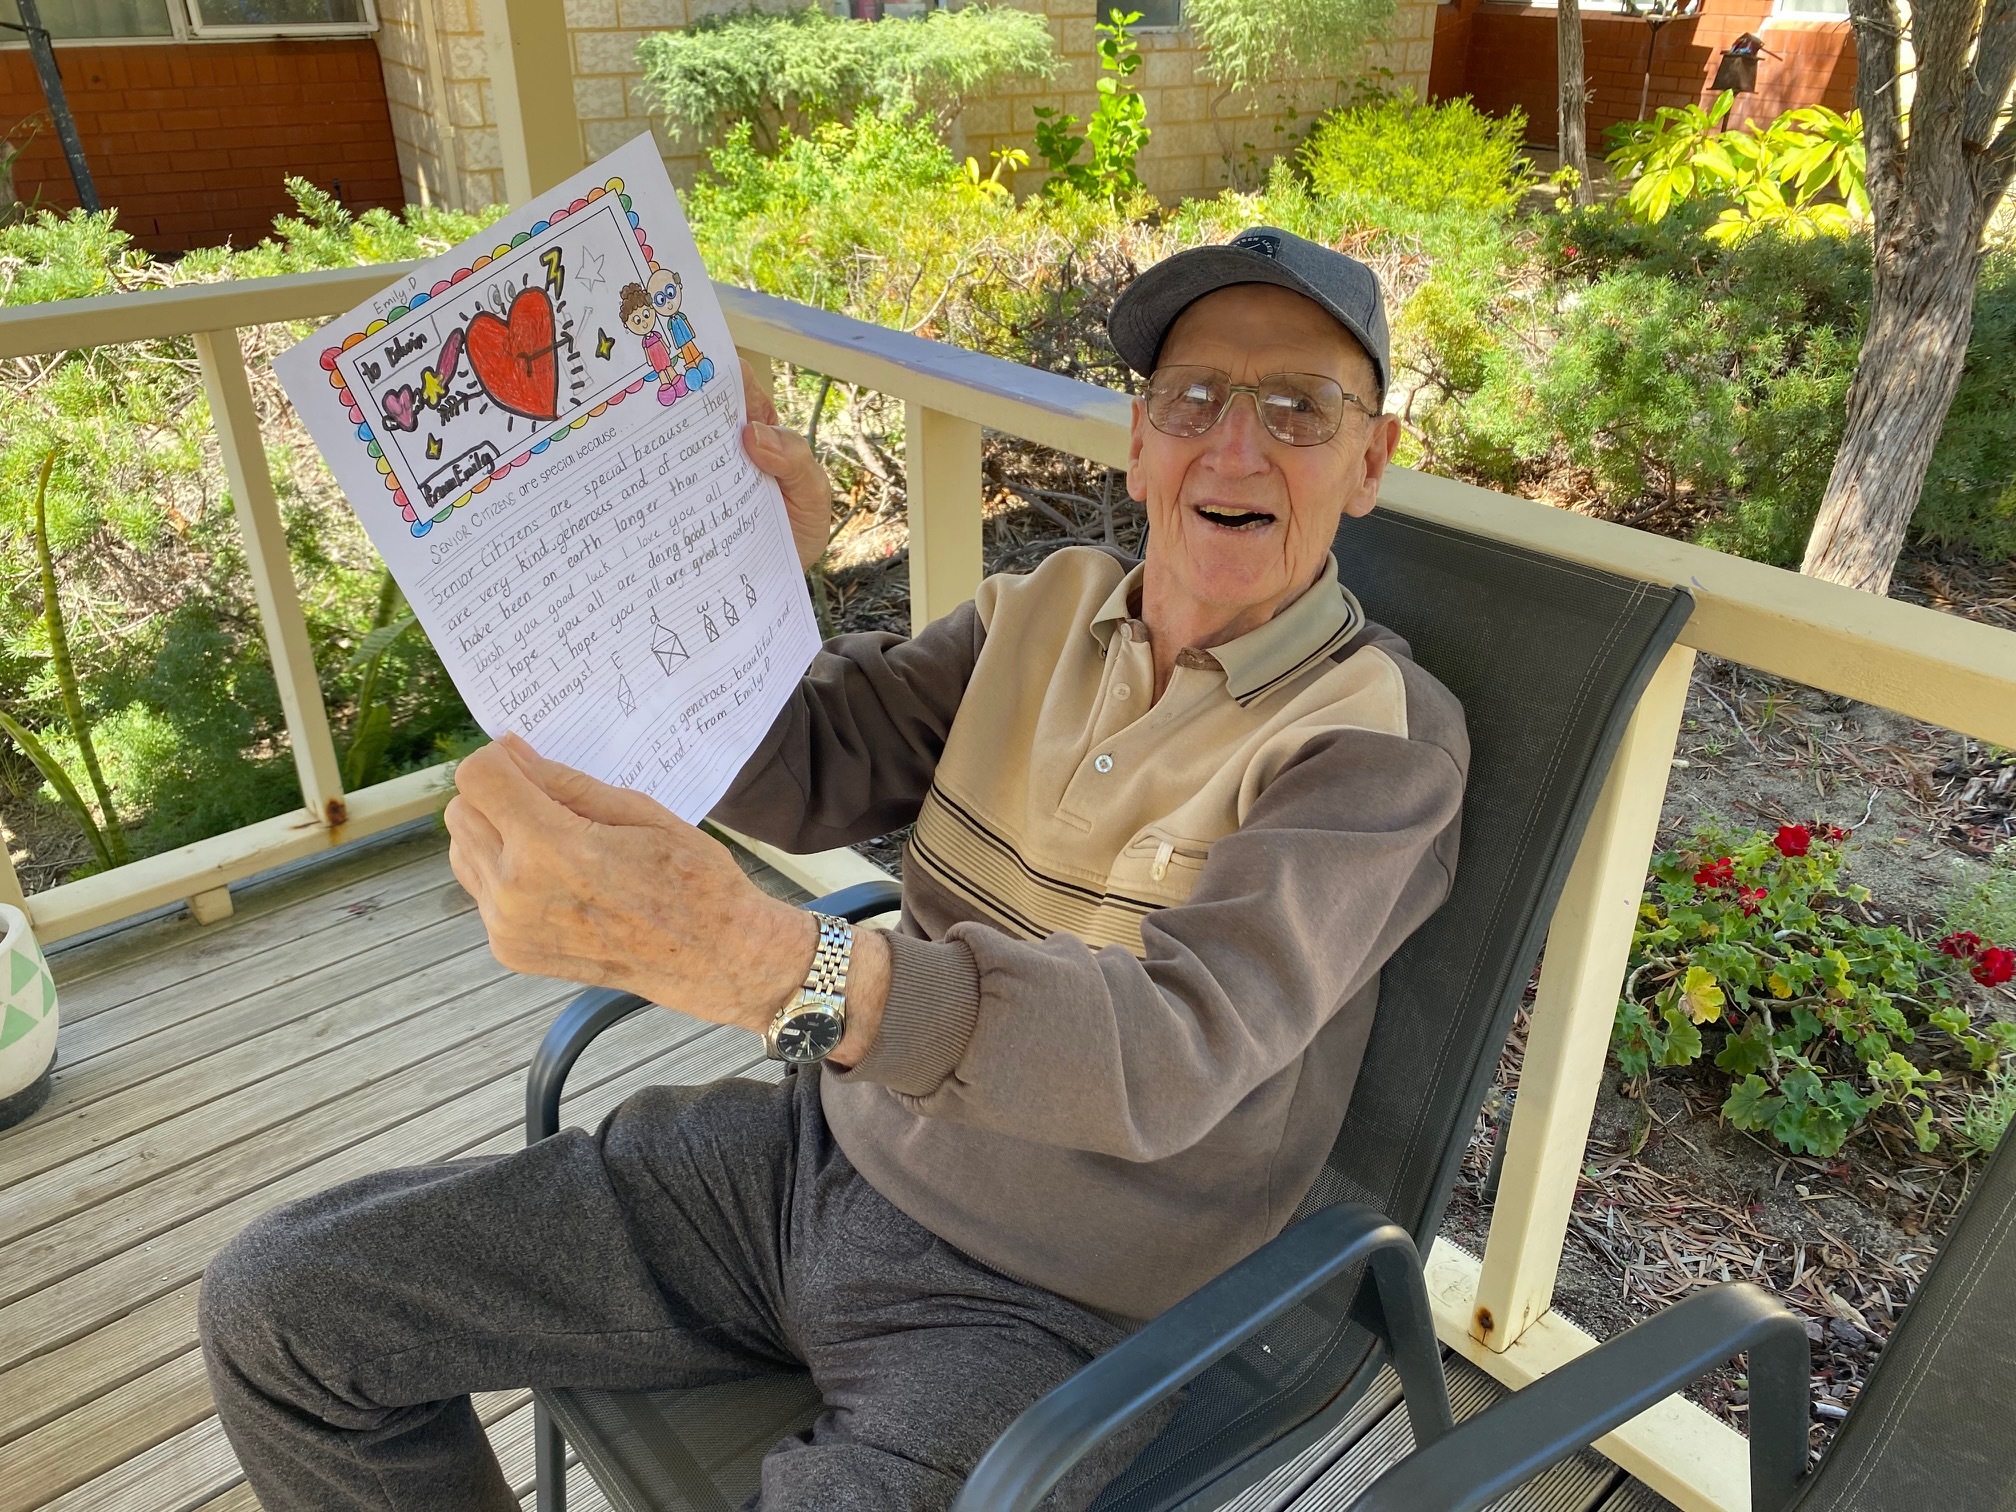 Emily.D
to Edwin
From Emily
SENIOR CITIZENS are special because...
Senior Citizens are special because they
are very kind, generous and of coarse they
have been on earth longer than us!
Wish you good luck I love you all and
I hope you all are doing good I do
Edwin I hope you all are great goodbye
Beathangs!
E d w i n
is a generous, beautiful and
kind. from Emily D